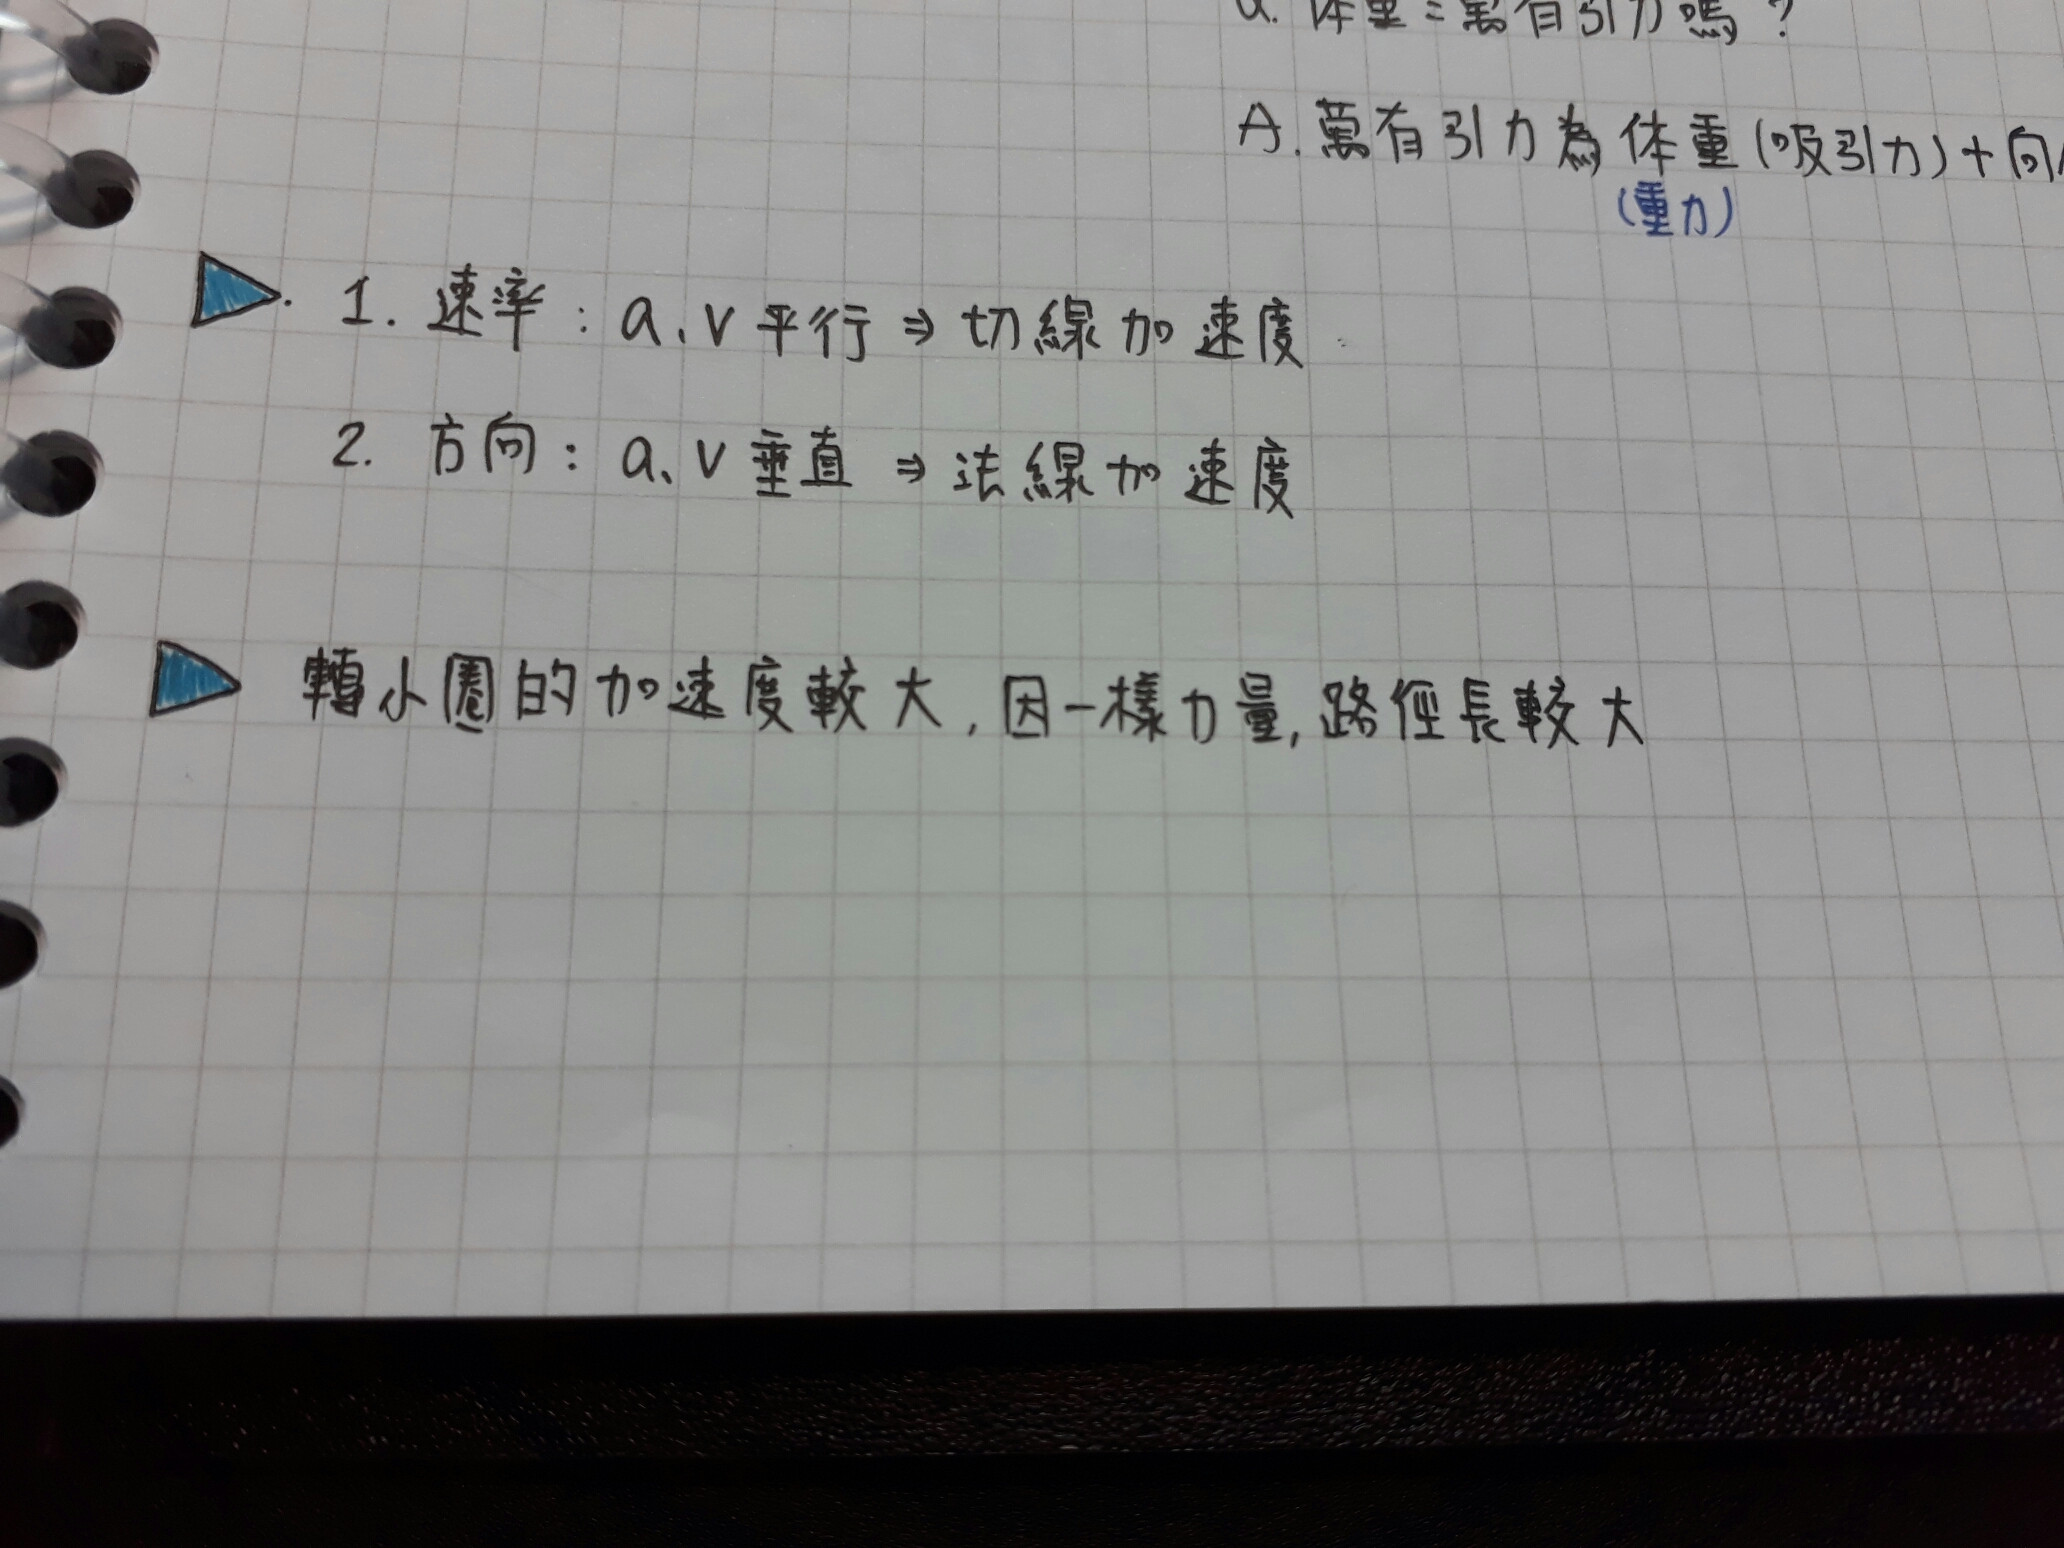 Q. 体重 = 萬有引力嗎？
A. 萬有引力為体重(吸引力)+向
(重力)
1. 速率：a、v 平行 ⇒ 切線加速度
2. 方向：a、v 垂直 ⇒ 法線加速度
轉小圈的加速度較大，因一樣力量，路徑長較大